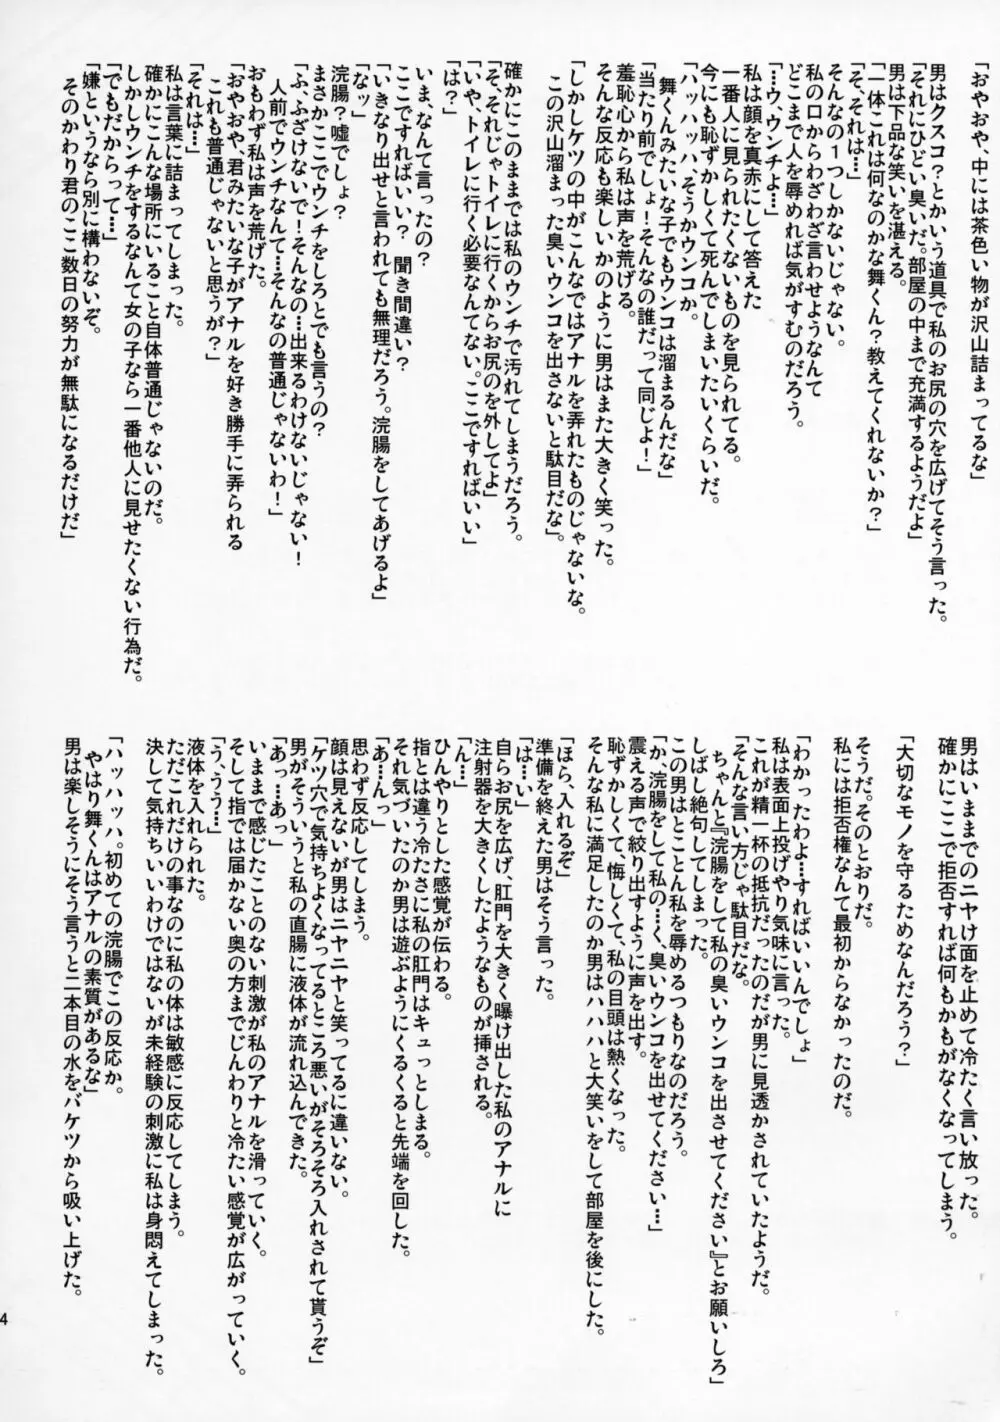 「おやおや、中には茶色い物が沢山詰まってるな」
男はクスコ？とかいう道具で私のお尻の穴を広げてそう言った。
「それにひどい臭いだ。部屋の中まで充満するようだよ」
男は下品な笑いを湛える。
「一体これは何なのかな舞くん？教えてくれないか？」
「そ、それは…」
そんなの1つしかないじゃない。
私の口からわざわざ言わせようなんて
どこまで人を辱めれば気がすむのだろう。
「…ウ、ウンチよ…」
私は顔を真赤にして答えた
一番人に見られたくないものを見られてる。
今にも恥ずかしくて死んでしまいたいくらいだ。
「ハッハッハ、そうかウンコか。
舞くんみたいな女の子でもウンコは溜まるんだな」
「当たり前でしょ！そんなの誰だって同じよ！」
羞恥心から私は声を荒げる。
そんな反応も楽しいかのように男はまた大きく笑った。
「しかしケツの中がこんなではアナルを弄れたものじゃないな。
この沢山溜まった臭いウンコを出さないと駄目だな」
確かにこのままでは私のウンチで汚れてしまうだろう。
「そ、それじゃトイレに行くからお尻のを外してよ」
「いや、トイレに行く必要なんてない。ここですればいい」
「は？」
いま、なんて言ったの？
ここですればいい？　聞き間違い？
「いきなり出せと言われても無理だろう。浣腸をしてあげるよ」
「なッ」
浣腸？嘘でしょ？
まさかここでウンチをしろとでも言うの？
「ふ、ふざけないで！そんなの…出来るわけないじゃない！
人前でウンチなんて…そんなの普通じゃないわ！」
おもわず私は声を荒げた。
「おやおや、君みたいな子がアナルを好き勝手に弄られる
これも普通じゃないと思うが？」
「それは…」
私は言葉に詰まってしまった。
確かにこんな場所にいること自体普通じゃないのだ。
しかしウンチをするなんて女の子なら一番他人に見せたくない行為だ。
「でもだからって…」
「嫌というなら別に構わないぞ。
そのかわり君のここ数日の努力が無駄になるだけだ」
男はいままでのニヤけ面を止めて冷たく言い放った。
確かにここで拒否すれば何もかもがなくなってしまう。
「大切なモノを守るためなんだろう？」
そうだ。そのとおりだ。
私には拒否権なんて最初からなかったのだ。
「わかったわよ…すればいいんでしょ」
私は表面上投げやり気味に言った。
これが精一杯の抵抗だったのだが男に見透かされていたようだ。
「そんな言い方じゃ駄目だな。
ちゃんと『浣腸をして私の臭いウンコを出させてください』とお願いしろ」
しばし絶句してしまった。
この男はとことん私を辱めるつもりなのだろう。
「か、浣腸をして私の…く、臭いウンコを出せてください…」
震える声で絞り出すように声を出す。
恥ずかしくて、悔しくて、私の目頭は熱くなった。
そんな私に満足したのか男はハハハと大笑いをして部屋を後にした。
「ほら、入れるぞ」
準備を終えた男はそう言った。
「は…い」
自らお尻を広げ、肛門を大きく曝け出した私のアナルに
注射器を大きくしたようなものが挿される。
「ん…」
ひんやりとした感覚が伝わる。
指とは違う冷たさに私の肛門はキュっとしまる。
それ気づいたのか男は遊ぶようにくるくると先端を回した。
「あ…んっ」
思わず反応してしまう。
顔は見えないが男はニヤニヤと笑ってるに違いない。
「ケツ穴で気持ちよくなってるところ悪いがそろそろ入れされて貰うぞ」
男がそういうと私の直腸に液体が流れ込んできた。
「あっ…あっ」
いままで感じたことのない刺激が私のアナルを滑っていく。
そして指では届かない奥の方までじんわりと冷たい感覚が広がっていく。
「う、うう…」
液体を入れられた。
ただこれだけの事なのに私の体は敏感に反応してしまう。
決して気持ちいいわけではないが未経験の刺激に私は身悶えてしまった。
「ハッハッハ。初めての浣腸でこの反応か。
やはり舞くんはアナルの素質があるな」
男は楽しそうにそう言うと二本目の水をバケツから吸い上げた。
4